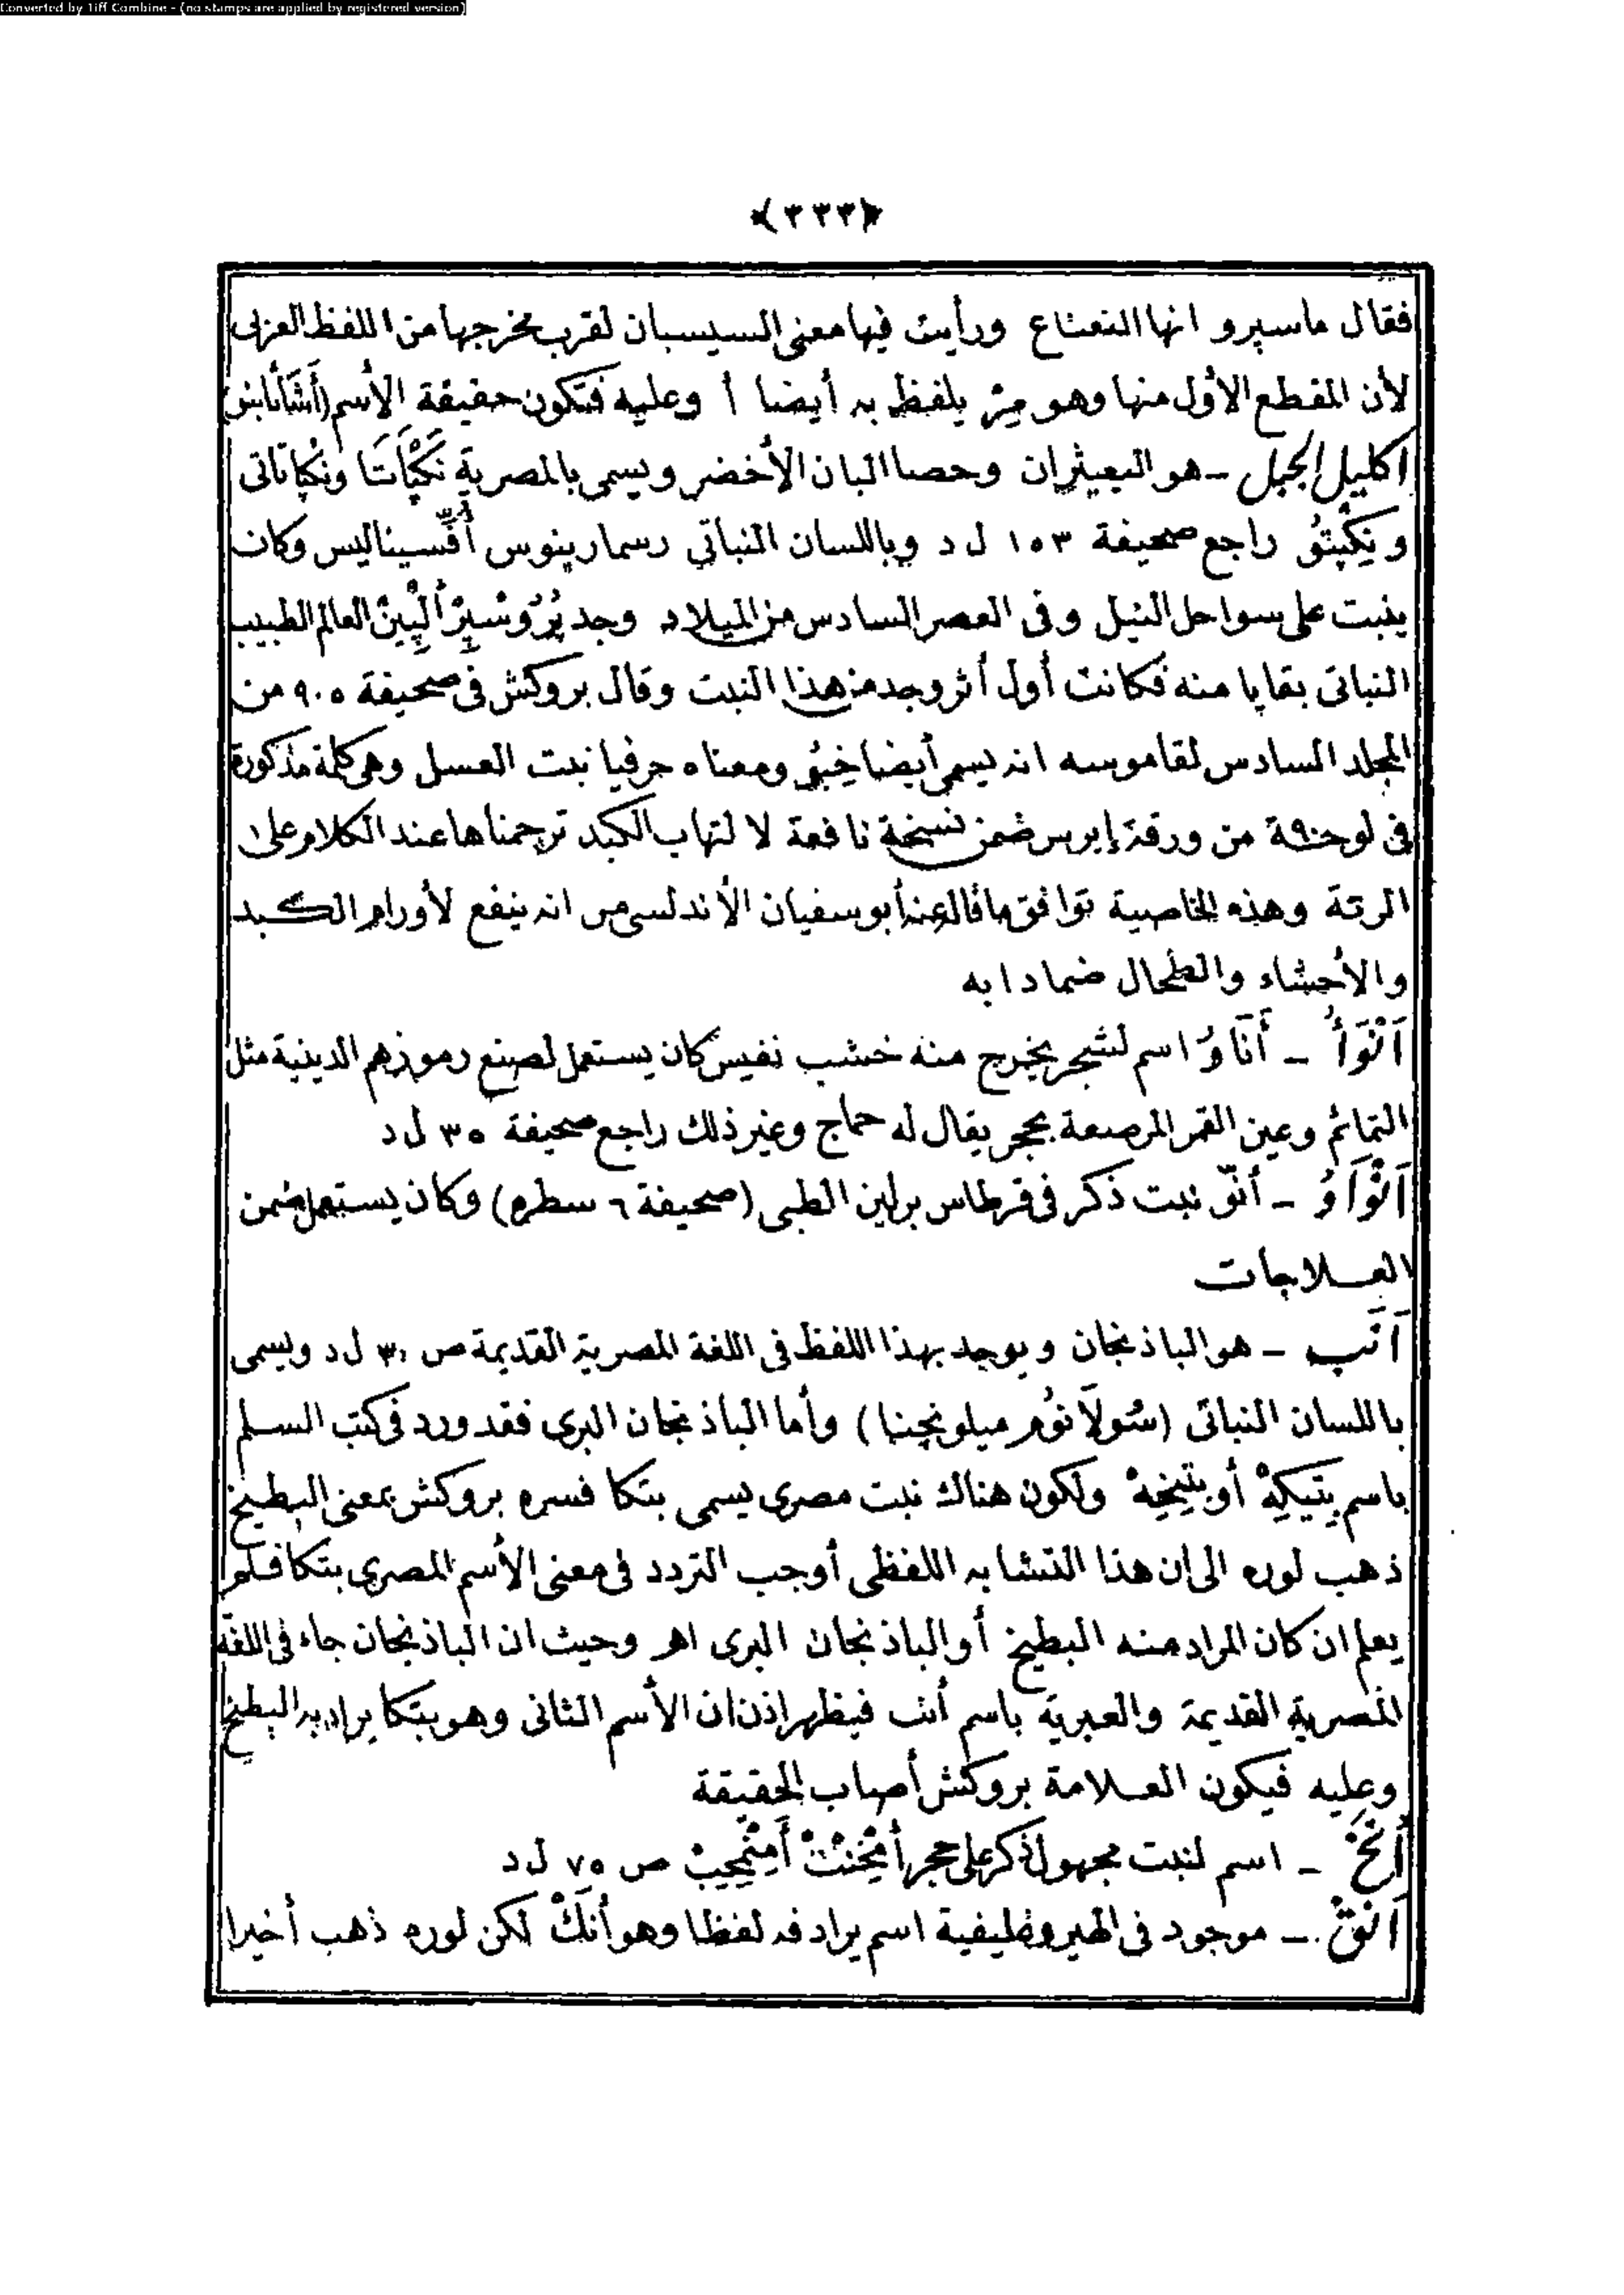 Converted by Tiff Combine - (no stamps are applied by registered version)
﴿٣٣٣﴾
فقال ماسپرو انها النعناع ورأيت فيها معنى السيسبان لقرب مخرجها من اللفظ العربى
لأن المقطع الأول منها وهو مِرْ يلفظ به أيضا أ وعليه فتكون حقيقة الأسم
اكليل الجبل ـ هو البعيثران وحصا البان الأخضر ويسمى بالمصرية نَكْپَاتَا ونْكپاتاتى
ونِكْپِتُو راجع صحيفة ١٥٣ ل د وباللسان النباتى رسمارينوس أُفِّسينا ليس وكان
ينبت على سواحل النيل وفى العصر السادس من الميلاد وجد پُرُوسْپِرْ أَلْپِينْ العالم الطبيب
النباتى بقايا منه فكانت أول أثر وجد من هذا النبت وقال بروكش فى صحيفة ٩٠٥ من
المجلد السادس لقاموسه انه يسمى أيضا ومعناه حرفيا نبت العسل وهى كلمة مذكورة
فى لوحة ٩ من ورقة إبرس ضمن نسخة نافعة لالتهاب الكبد ترجمناها عند الكلام على
الرتة وهذه الخاصية توافق ما قاله عنه أبو سفيان الأندلسى من انه ينفع لأورام الكبد
والأحشاء والطحال ضمادا به
اَنْوَأُ ـ أَنَاوُ اسم لشجر يخرج منه خشب نفيس كان يستعمل لصنع رموزهم الدينية مثل
التمائم وعين القمر المرصعة بحجر يقال له حماج وغير ذلك راجع صحيفة ٣٥ ل د
اَنْوَاوُ ـ أنوّ نبت ذكر فى قرطاس برلين الطبى (صحيفة ٦ سطره) وكان يستعمل ضمن
العلاجات
اَنَب ـ هو الباذنجان ويوجد بهذا اللفظ فى اللغة المصرية القديمة ص ٣٠ ل د ويسمى
باللسان النباتى (سُولَانُوم ميلونجنا) وأما الباذنجان البرى فقد ورد فى كتب السلم
باسم بِتِيكِهْ أو بِتِيخِهْ ولكون هناك نبت مصرى يسمى بتكا فسره بروكش بمعنى البطيخ
ذهب لوره الى ان هذا التشابه اللفظى أوجب التردد فى معنى الأسم المصرى بتكا فلم
يعلم ان كان المراد منه البطيخ أو الباذنجان البرى اهـ وحيث ان الباذنجان جاء فى اللغة
المصرية القديمة والعبرية باسم أنب فيظهر اذن ان الأسم الثانى وهو بتكا يراد به البطيخ
وعليه فيكون العلامة بروكش أصاب الحقيقة
أَنْخَ ـ اسم لنبت مجهول ذكر على حجر أَمْنِحِيبْ ص ٧٥ ل د
اَنْوقْ ـ موجود فى الهيروغليفية اسم يرادفه لفظا وهو أَنَكْ لكن لوره ذهب أخيرا